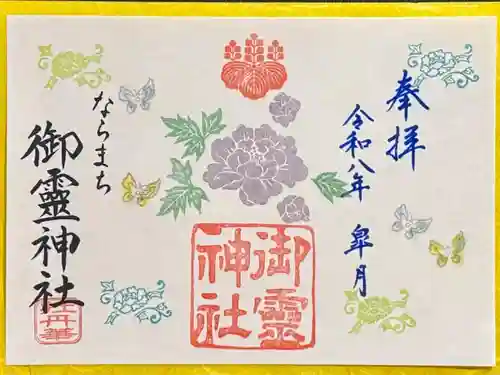 奉拝
令和八年 皐月
御靈神社
ならまち
御靈神社
牡丹華